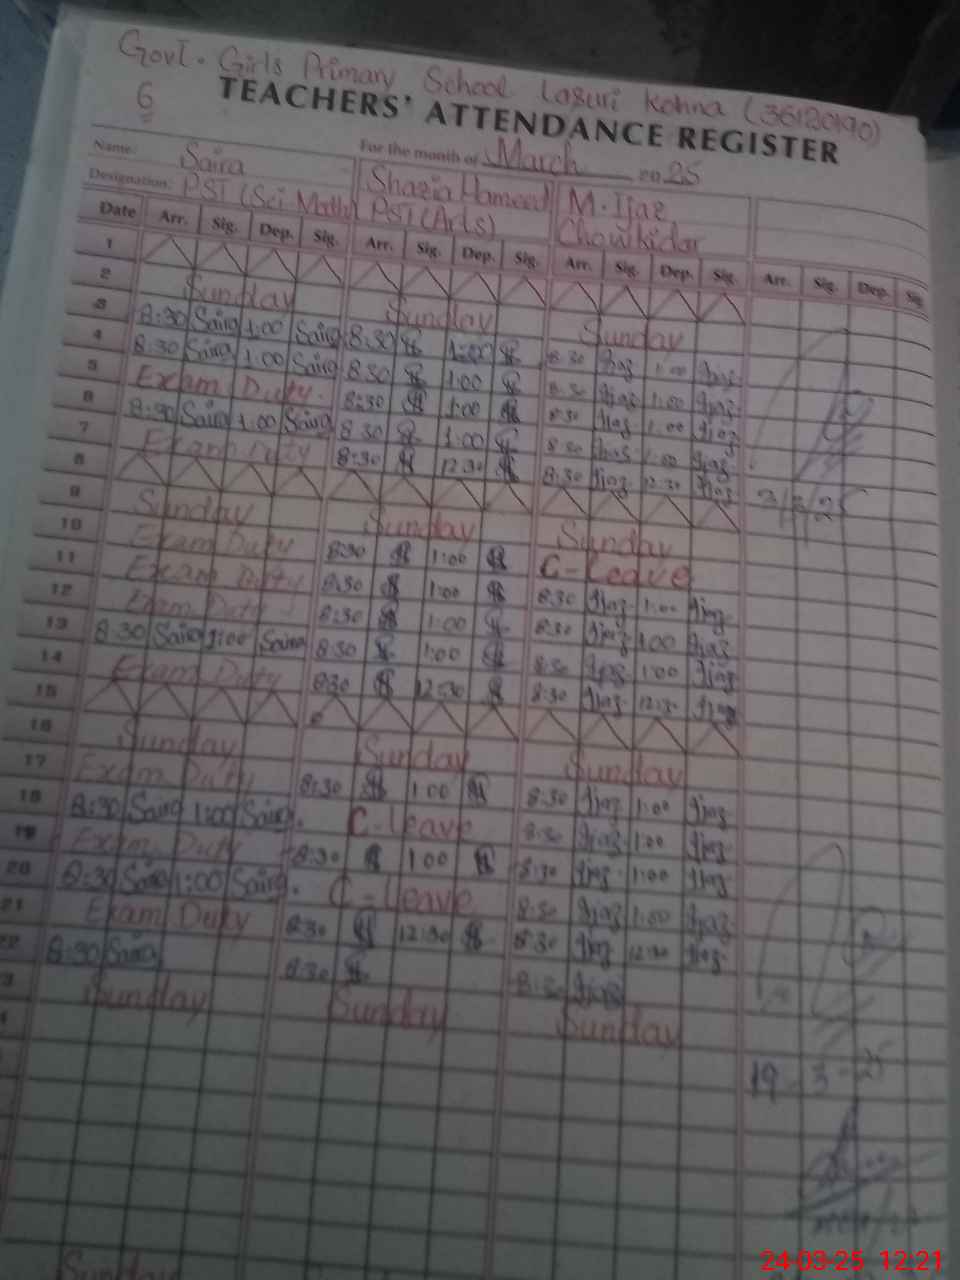 Govt. Girls Primary School Lasuri Kohna (36120190)
6 TEACHERS' ATTENDANCE REGISTER
Name: Saira For the month of March 2025
Designation: PST (Sci Math) Shazia Hameed PST (Arts) M. Ijaz Chowkidar
Date Arr. Sig. Dep. Sig. Arr. Sig. Dep. Sig. Arr. Sig. Dep. Sig. Arr. Sig. Dep. Sig
1
2 Sunday Sunday Sunday
3 8:30 Saira 1:00 Saira 8:30 1:00 8:30 Ijaz 1:00 Ijaz
4 8:30 Saira 1:00 Saira 8:30 1:00 8:30 Ijaz 1:00 Ijaz
5 Exam Duty. 8:30 1:00 8:30 Ijaz 1:00 Ijaz
6 8:30 Saira 1:00 Saira 8:30 1:00 8:30 Ijaz 1:00 Ijaz
7 Exam Duty 8:30 12:30 8:30 Ijaz 12:30 Ijaz
8
9 Sunday Sunday Sunday
10 Exam Duty 8:30 1:00 C-Leave
11 Exam Duty 8:30 1:00 8:30 Ijaz 1:00 Ijaz
12 Exam Duty 8:30 1:00 8:30 Ijaz 1:00 Ijaz
13 8:30 Saira 1:00 Saira 8:30 1:00 8:30 Ijaz 1:00 Ijaz
14 Exam Duty 8:30 12:30 8:30 Ijaz 12:30 Ijaz
15
16 Sunday Sunday Sunday
17 Exam Duty 8:30 1:00 8:30 Ijaz 1:00 Ijaz
18 8:30 Saira 1:00 Saira. C-leave 8:30 Ijaz 1:00 Ijaz
19 Exam Duty 8:30 1:00 8:30 Ijaz 1:00 Ijaz
20 8:30 Saira 1:00 Saira. C-leave 8:30 Ijaz 1:00 Ijaz
21 Exam Duty 8:30 12:30 8:30 Ijaz 12:30 Ijaz
22 8:30 Saira 8:30 8:30 Ijaz
3 Sunday Sunday Sunday
19-3-25
Sunday
24-03-25 12:21